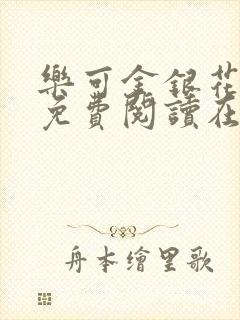 樂可金銀花
免費閱讀在
舟本繪里歌